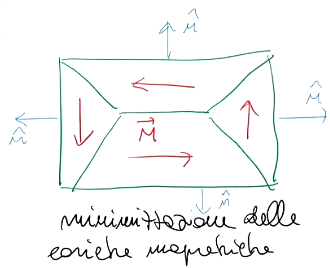 n̂
n̂
n̂
M⃗
n̂
minimizzazione delle
cariche magnetiche